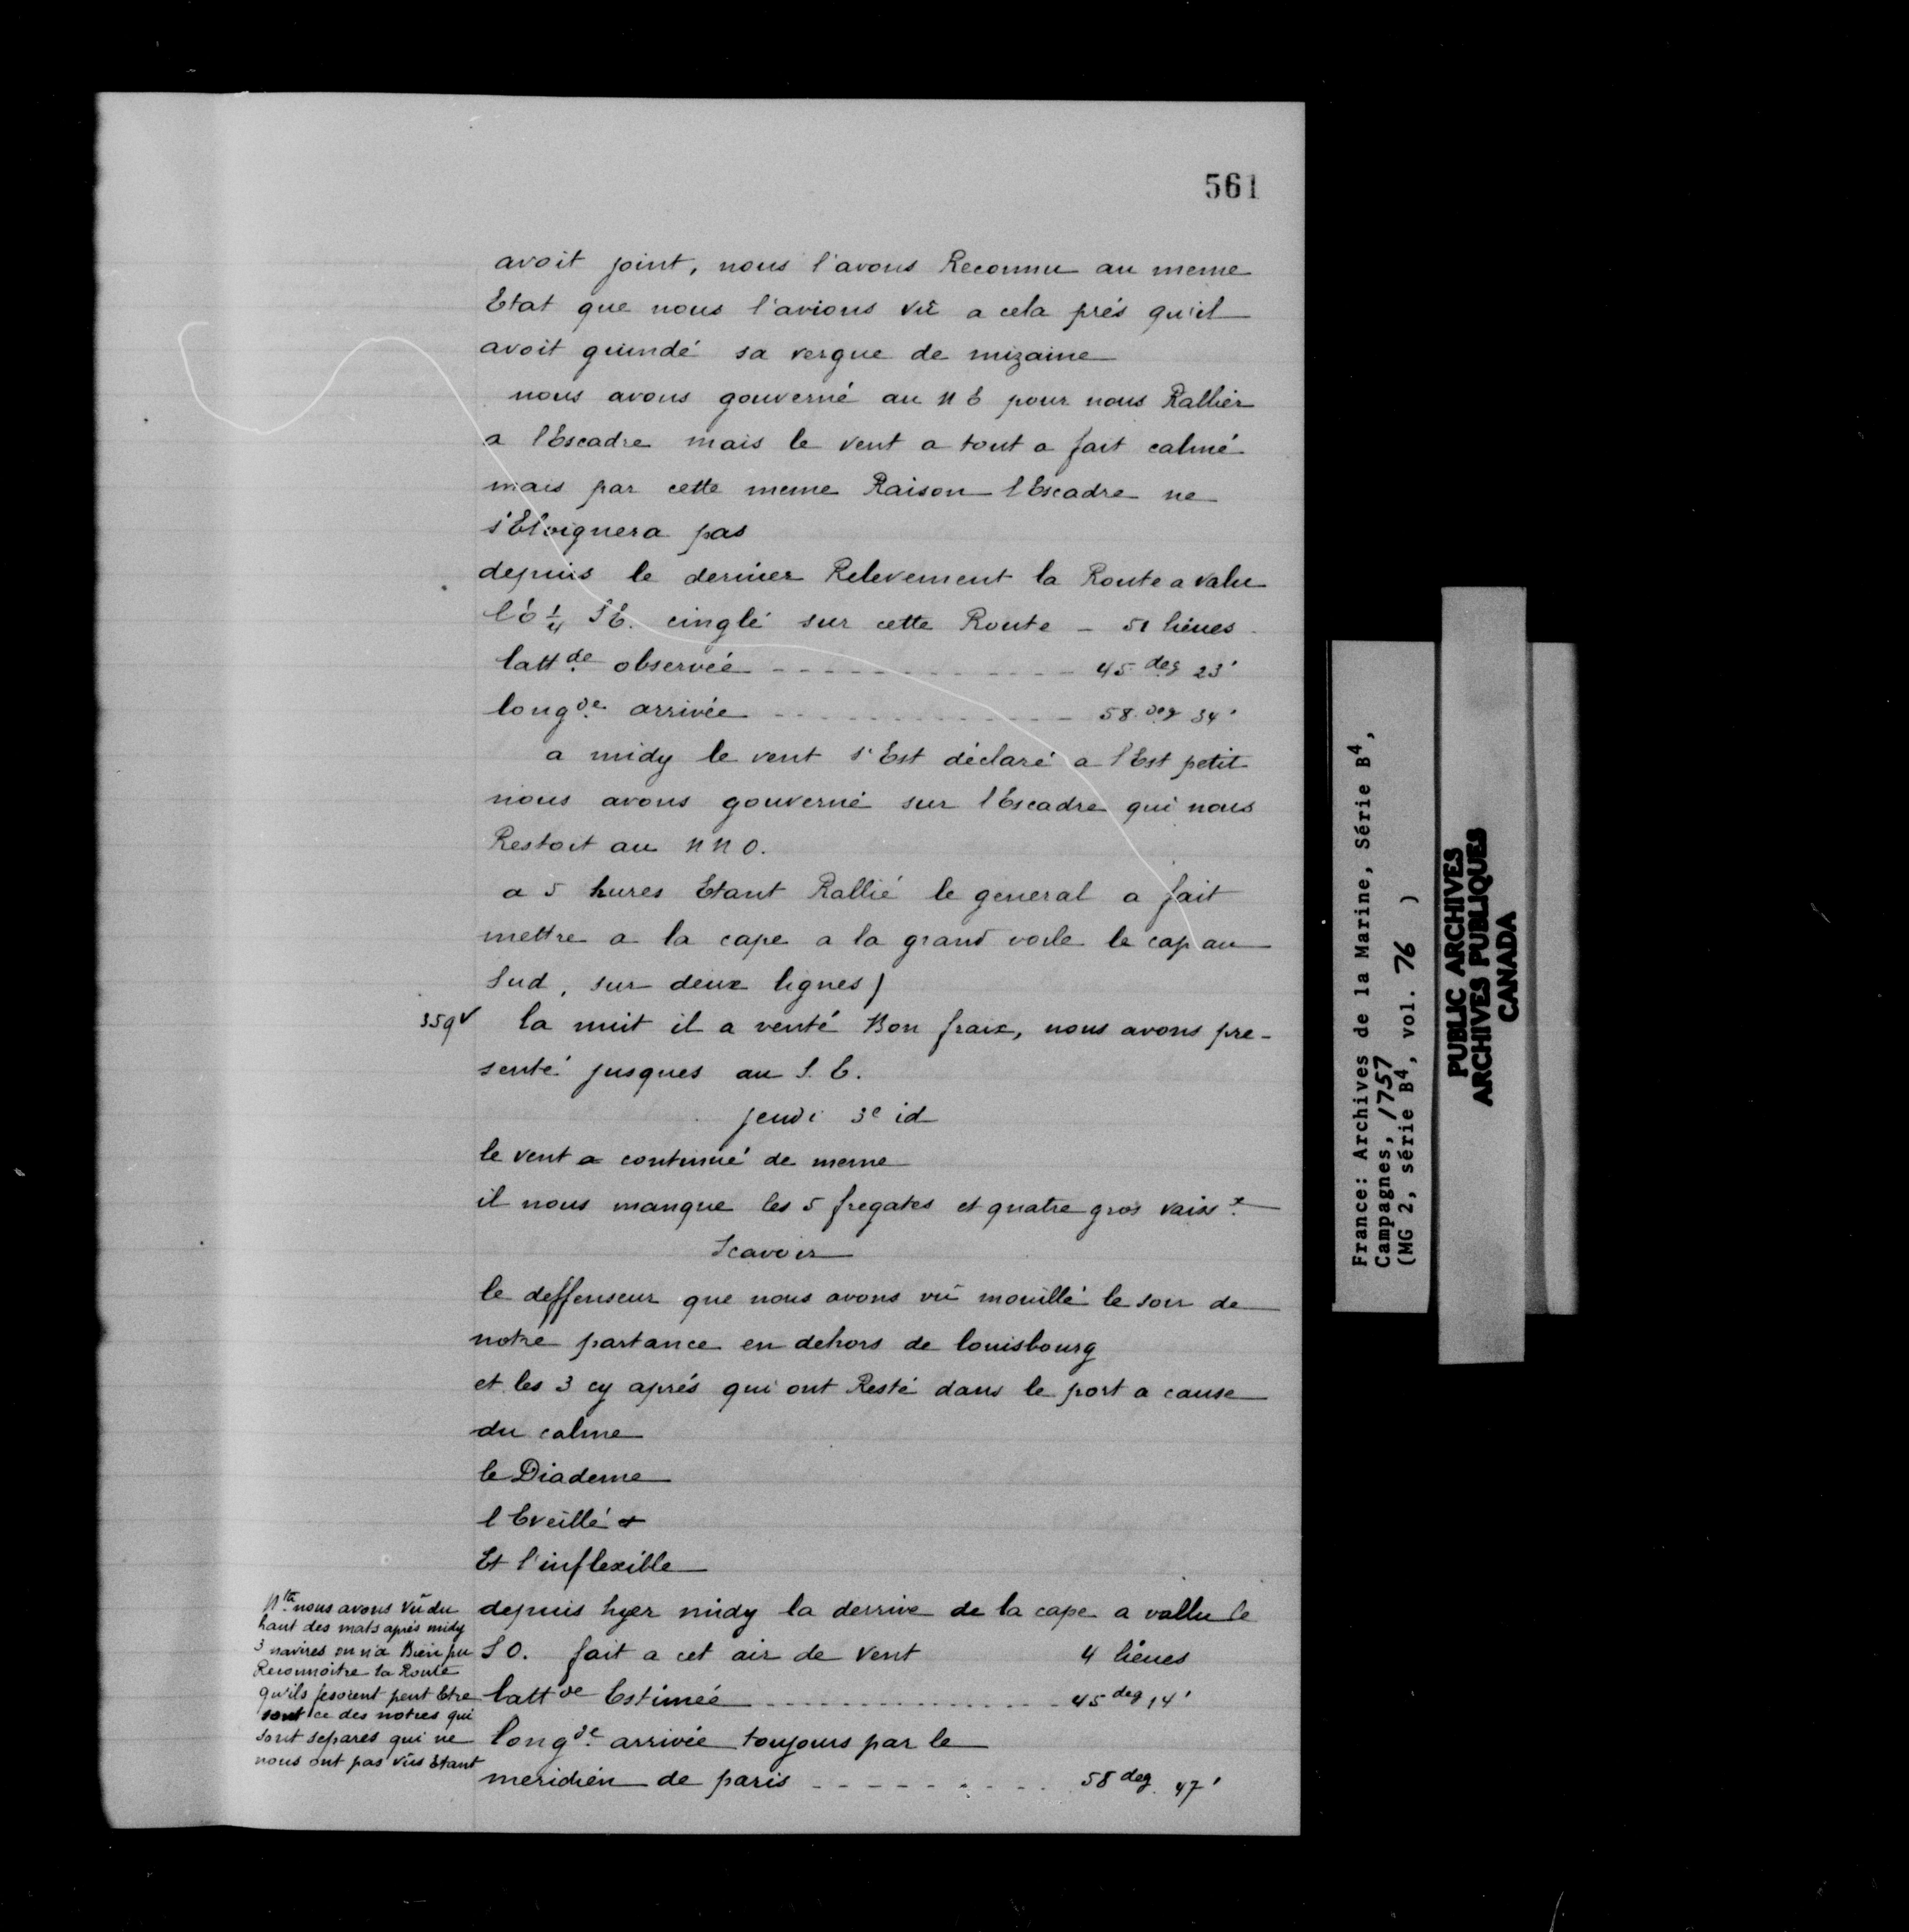 561
avoit joint, nous l'avons Reconnu au meme
Etat que nous l'avions vû a cela prés qu'il
avoit guindé sa vergue de mizaine
nous avons gouverné au N E pour nous Rallier
a l'Escadre mais le vent a tout a fait calmé
mais par cette meme Raison l'Escadre ne
s'Eloignera pas
depuis le dernier Relevement la Route a valu
l'E 1/4 S E. cinglé sur cette Route - 51 lieues
latt.de observée - - - - - - - - - - - - 45 deg 23'
long.de arrivée - - - - - - - - - - - - 58. deg 34'
a midy le vent s'Est déclaré a l'Est petit
nous avons gouverné sur l'Escadre qui nous
Restoit au N N O.
a 5 hures Etant Rallié le general a fait
mettre a la cape a la grand voile le cap au
Sud, sur deux lignes)
359v la nuit il a venté Bon fraix, nous avons pre-
senté jusques au S. E.
jeudi 3e id
le vent a continué de meme
il nous manque les 5 fregates et quatre gros vaiss.x
Scavoir
le deffenseur que nous avons vû mouillé le soir de
notre partance en dehors de louisbourg
et les 3 cy aprés qui ont Resté dans le port a cause
du calme
le Diademe
l Eveillé
Et l'inflexible
depuis hyer midy la derrive de la cape a vallu le
S O. fait a cet air de vent 4 lieues
latt.de Estimée - - - - - - - - - - - - 45 deg 14'
long.de arrivée toujours par le
meridien de paris - - - - - - - - - 58 deg. 47'
N.ta nous avons vû du
haut des mats aprés midy
3 navires on n'a Bien pu
Reconnoitre la Route
qu'ils fesoient peut Etre
sont ce des notres qui
sont separés qui ne
nous ont pas vûs Etant
France: Archives de la Marine, Série B4,
Campagnes, 1757
(MG 2, série B4, vol. 76 )
PUBLIC ARCHIVES
ARCHIVES PUBLIQUES
CANADA